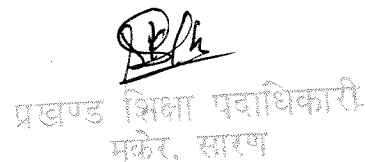 प्रखण्ड शिक्षा पदाधिकारी
मकेर, सारण